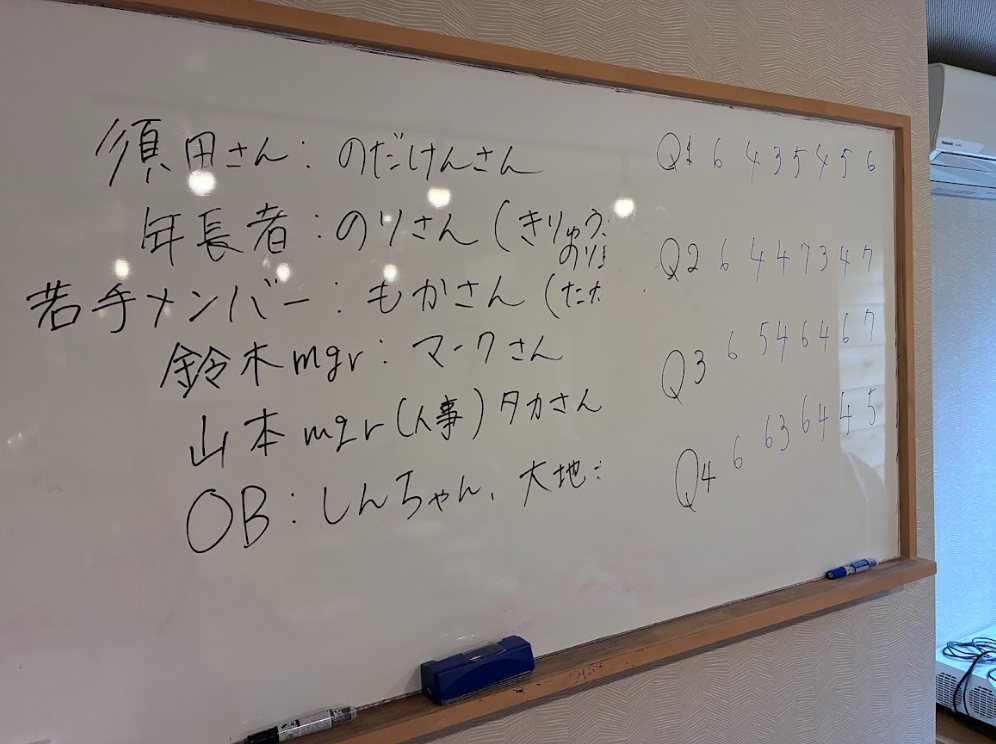 須田さん：のだけんさん
年長者：のりさん（きりゅう
のり
若手メンバー：もかさん（た
鈴木mgr：マークさん
山本mgr（人事）タカさん
OB：しんちゃん、大地
Q1 6 4 3 5 4 5 6
Q2 6 4 4 7 3 4 7
Q3 6 5 4 6 4 6 7
Q4 6 6 3 6 4 4 5